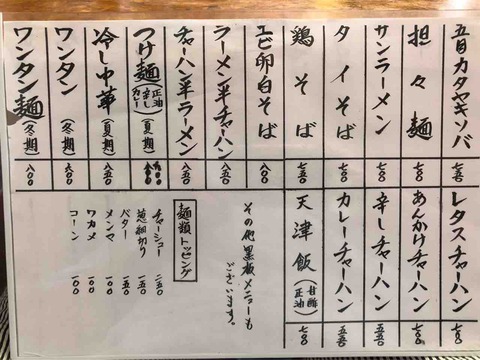 五目カタヤキソバ
七五〇
担々麺
七〇〇
サンラーメン
七〇〇
タイそば
七〇〇
鶏そば
七五〇
エビ卵白そば
八〇〇
ラーメン半チャーハン
八五〇
チャーハン半ラーメン
八五〇
つけ麺(正油 辛し カレー)(夏期)
冷し中華(夏期)
八五〇
ワンタン(冬期)
六〇〇
ワンタン麺(冬期)
八〇〇
レタスチャーハン
七〇〇
あんかけチャーハン
七〇〇
辛しチャーハン
五五〇
カレーチャーハン
五五〇
天津飯(甘酢 正油)
七〇〇
その他黒板メニューも
ございます。
麺類トッピング
チャーシュー 二五〇
葱細切り 一五〇
バター 一五〇
メンマ 一〇〇
ワカメ 一〇〇
コーン 一〇〇